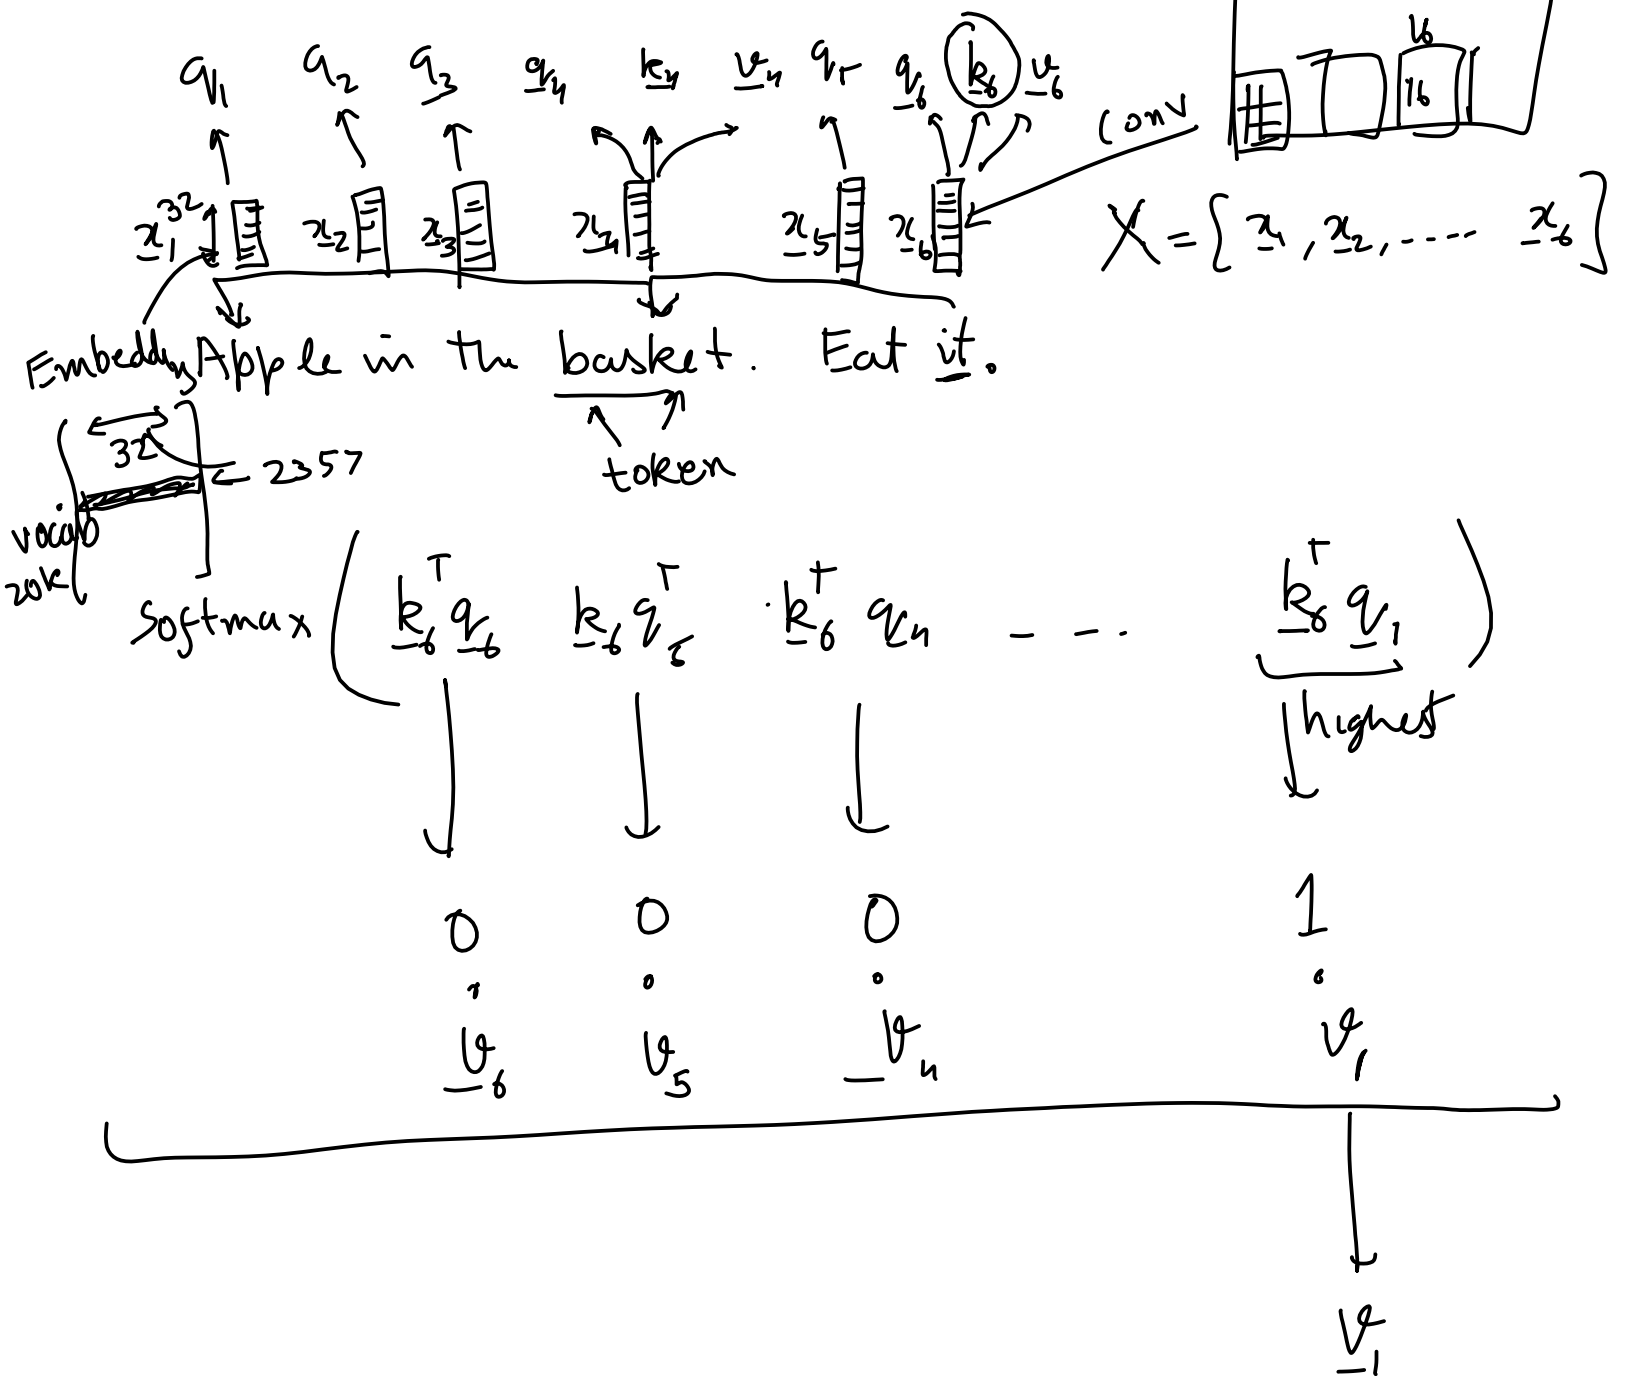 q1 q2 q3 q4 k4 v4 q5 q6 k6 v6
16
16
conv
x1 32 x2 x3 x4 x5 x6
X = { x1, x2, ..... x6 }
Embedding Apple in the basket. Eat it.
32
2357
token
vocab
20k
Softmax ( k6^T q6 k6 q5^T k6^T q4 - - - k6^T q1 )
highest
0 0 0 1
. . . .
v6 v5 v4 v1
v1